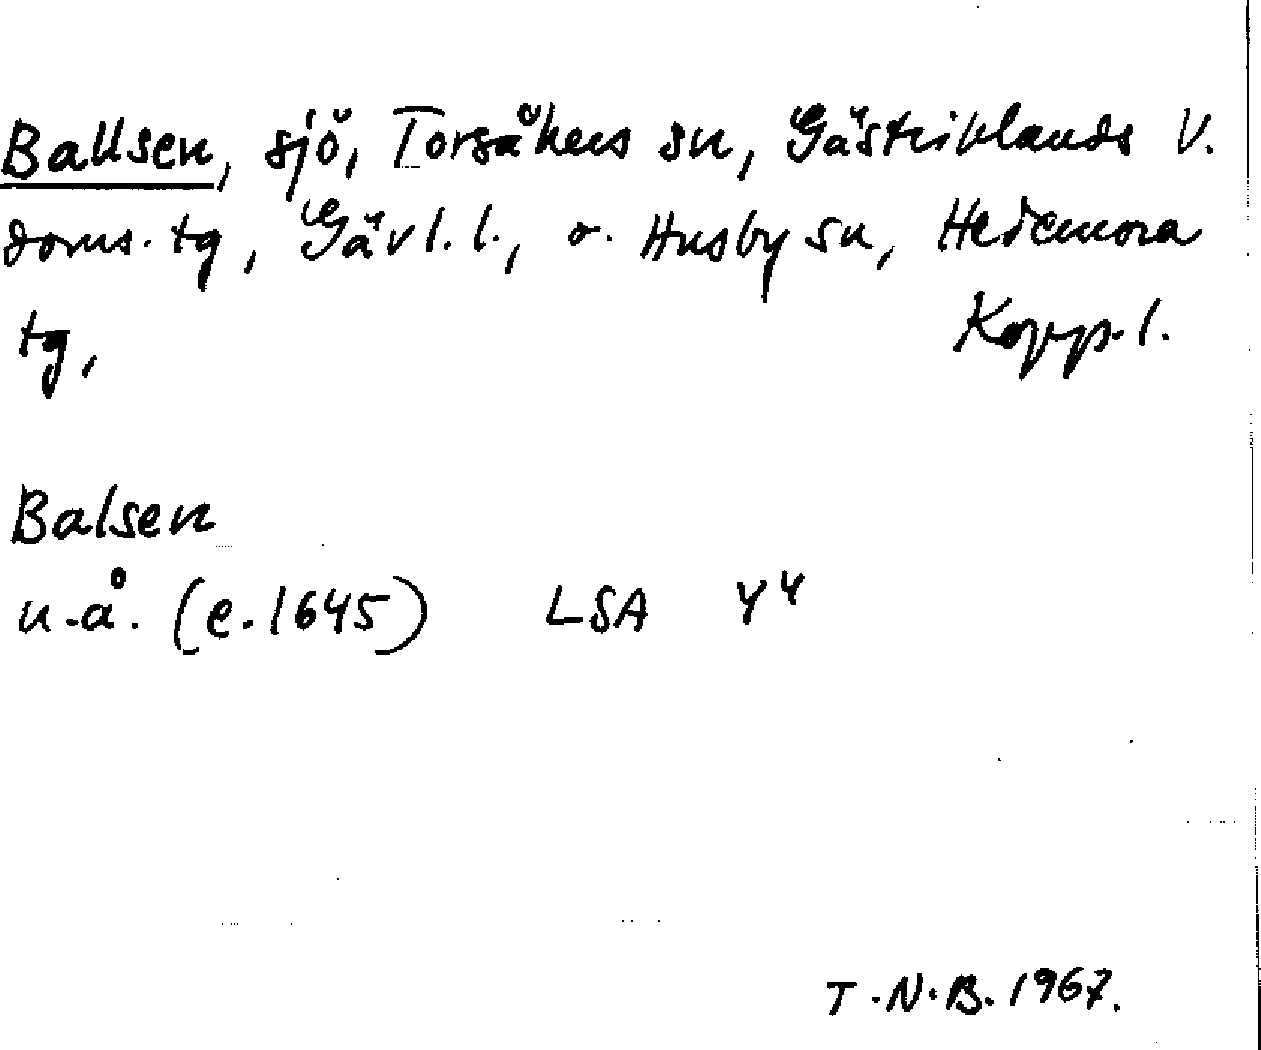 Ballsen, sjö, Torsåkers sn, Gästriklands V.
doms. tg, Gävl. l., o. Husby sn, Hedemora
tg, Kopp. l.
Balsen
u.å. (e. 1645) LSA Y4
T.N.B. 1967.